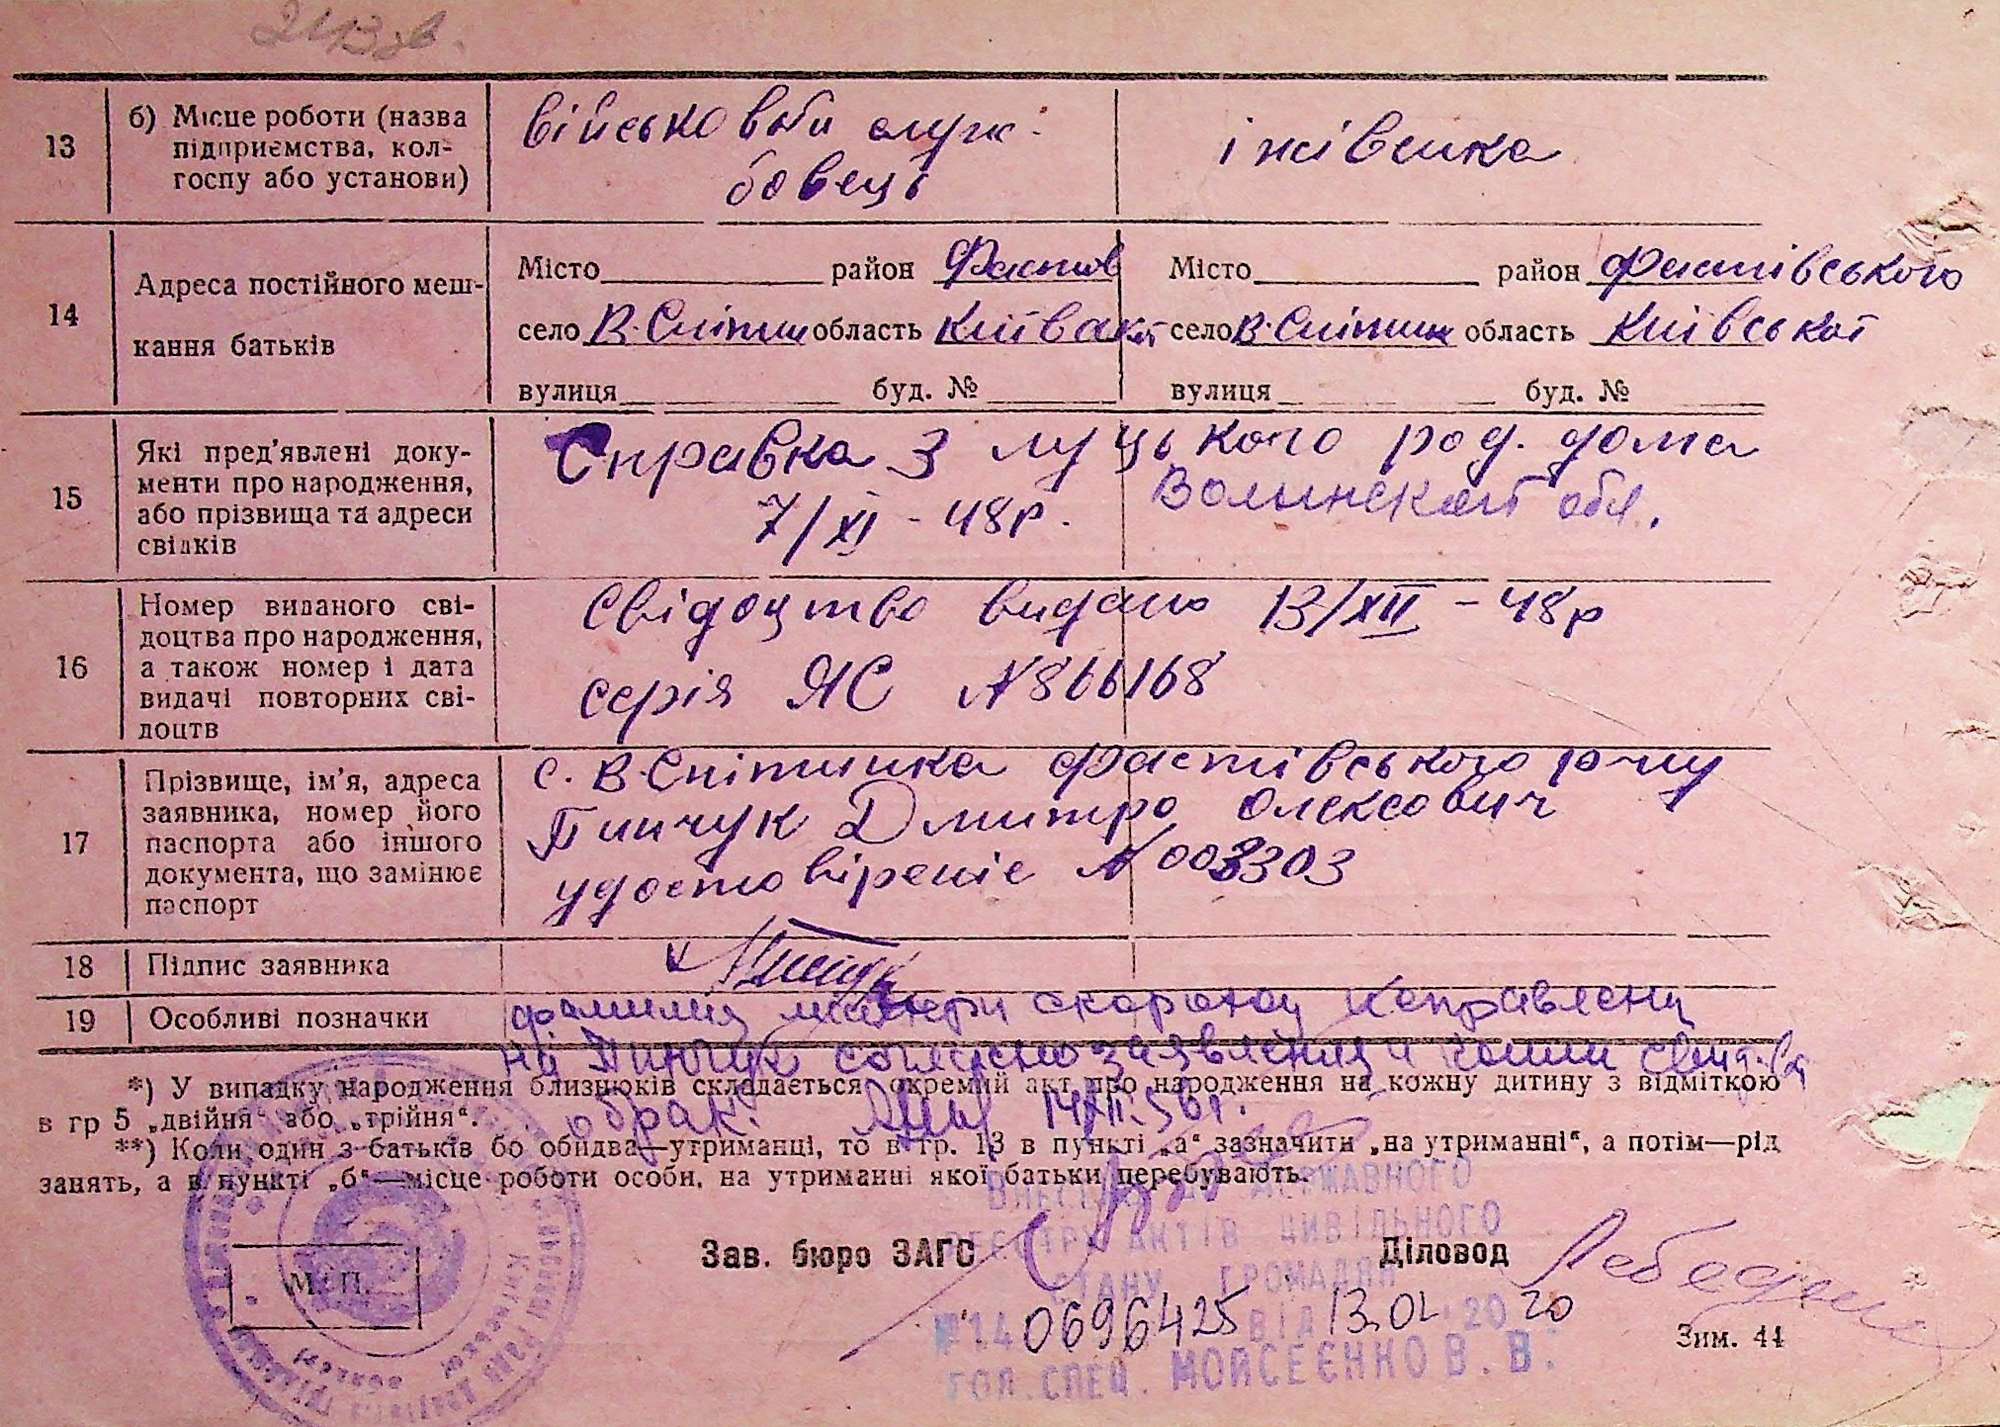 13
б) Місце роботи (назва
підприємства, кол-
госпу або установи)
військовий служ-
бовець
14
Адреса постійного меш-
кання батьків
Місто район Фастів
село В. Снітин область Київськ
вулиця буд. №
Місто район Фастівського
село В. Снітин область Київської
вулиця буд. №
15
Які пред'явлені доку-
менти про народження,
або прізвища та адреси
свідків
Справка з луцького род. дома
7/XI - 48р. Волинской обл.
16
Номер виданого сві-
доцтва про народження,
а також номер і дата
видачі повторних сві-
доцтв
Свідоцтво видано 13/XII - 48р
серія ЯС №866168
17
Прізвище, ім'я, адреса
заявника, номер його
паспорта або іншого
документа, що замінює
паспорт
с. В-Снітинка Фастівського р-ну
Пинчук Дмитро Олексович
удостовіреніє № 003303
18
Підпис заявника
19
Особливі позначки
фамилия матери исправлена
на Пинчук согласно заявления и копии свид-ва
о брак.
*) У випадку народження близнюків складається окремий акт про народження на кожну дитину з відміткою
в гр 5 „двійня“ або „трійня“.
**) Коли один з батьків бо обидва—утриманці, то в гр. 13 в пункті „а“ зазначити „на утриманні“, а потім—рід
занять, а в пункті „б“—місце роботи особи, на утриманні якої батьки перебувають.
ДЕРЖАВНОГО
АКТІВ ЦИВІЛЬНОГО
СТАНУ ГРОМАДЯН
Зав. бюро ЗАГС
Діловод
М. П.
0696425 ВІД 13.02 2020
ГОЛ. СПЕЦ. МОЙСЕЄНКО В. В.
Зим. 44